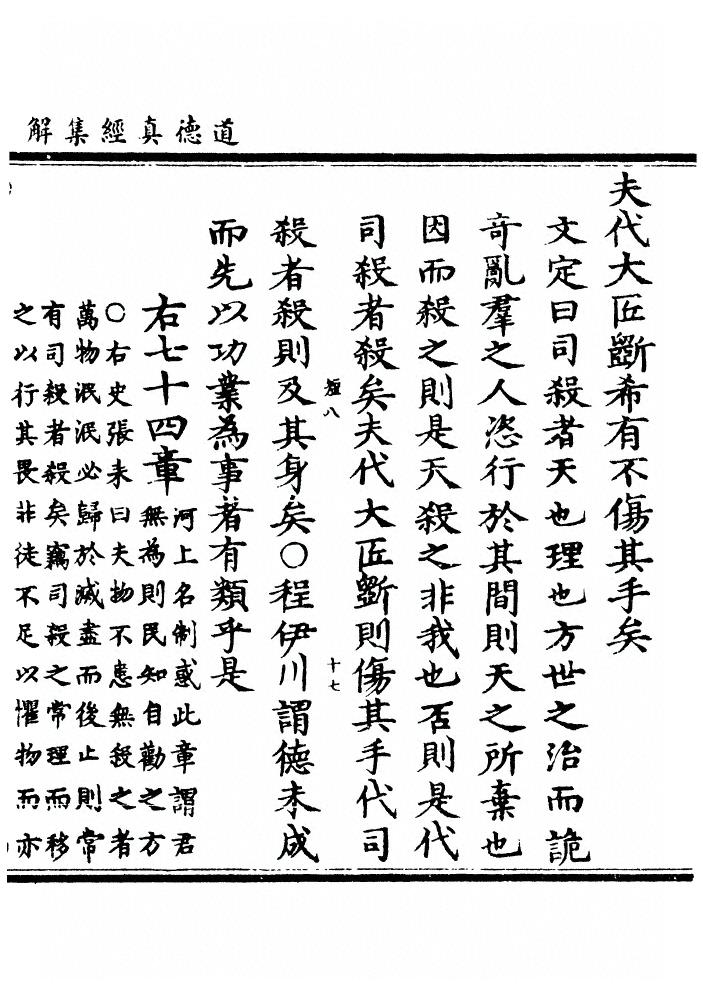 道德真經集解
夫代大匠斲希有不傷其手矣
文定曰司殺者天也理也方世之治而詭
竒亂羣之人恣行於其間則天之所棄也
因而殺之則是天殺之非我也否則是代
司殺者殺矣夫代大匠斲則傷其手代司
短八
十七
殺者殺則及其身矣○程伊川謂德未成
而先以功業為事者有類乎是
右七十四章河上名制惑此章謂君
無為則民知自勸之方
○右史張耒曰夫物不患無殺之者
萬物泯泯必歸於滅盡而後止則常
有司殺者殺矣竊司殺之常理而移
之以行其畏非徒不足以懼物而亦